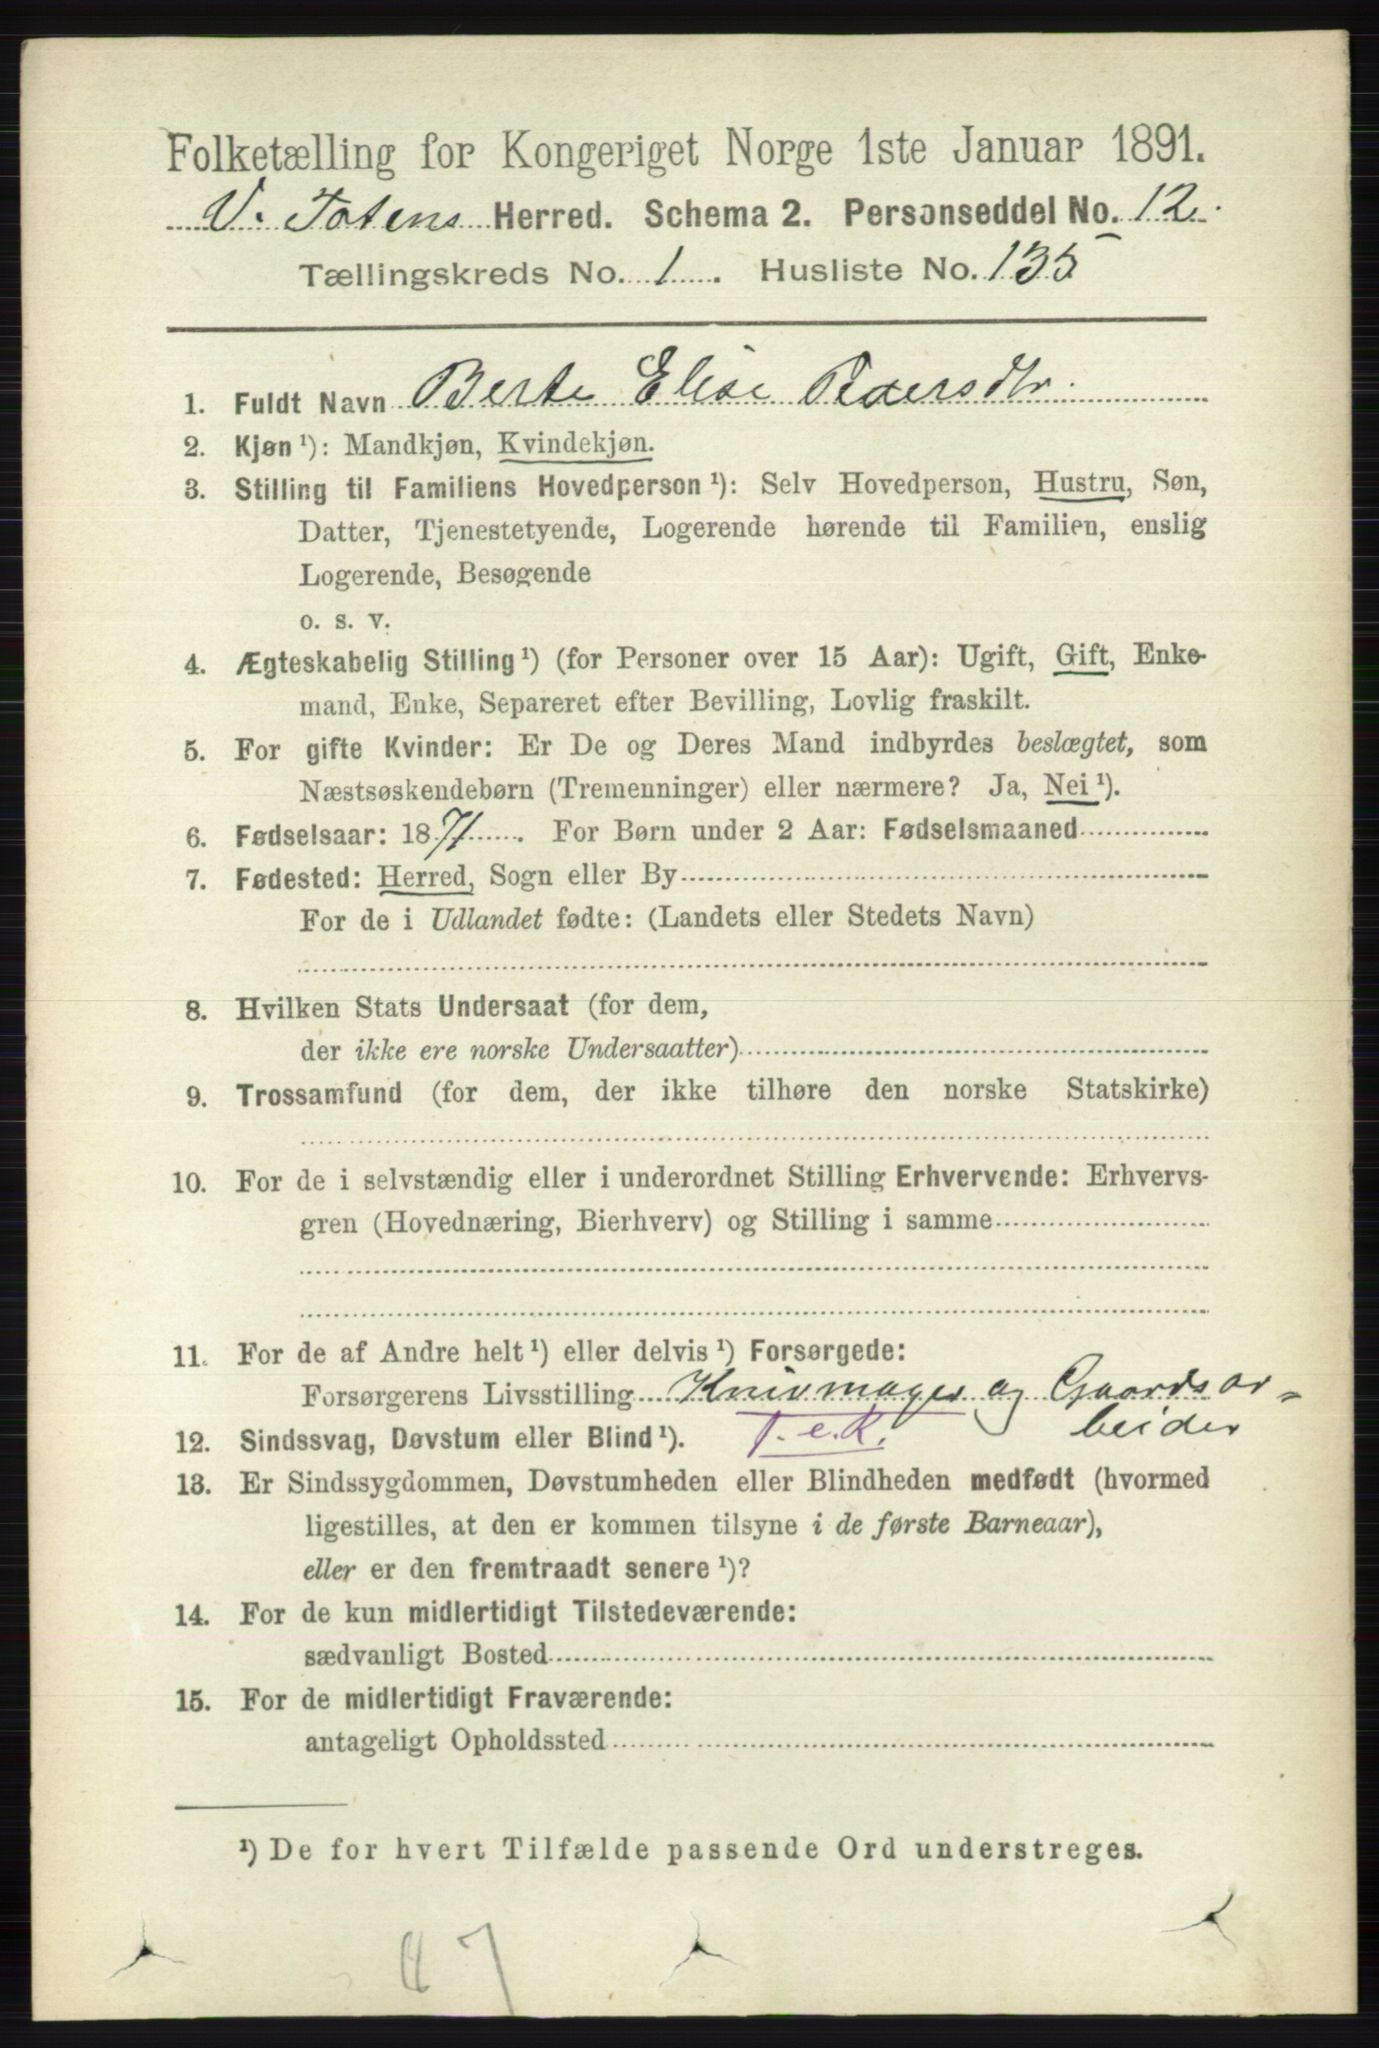 Folketælling for Kongeriget Norge 1ste Januar 1891.
V. Totens Herred. Schema 2. Personseddel No. 12.
Tællingskreds No. 1. Husliste No. 135
1. Fuldt Navn Berte Elise Pedersdtr.
2. Kjøn ¹): Mandkjøn, Kvindekjøn.
3. Stilling til Familiens Hovedperson ¹): Selv Hovedperson, Hustru, Søn,
Datter, Tjenestetyende, Logerende hørende til Familien, enslig
Logerende, Besøgende
o. s. v.
4. Ægteskabelig Stilling ¹) (for Personer over 15 Aar): Ugift, Gift, Enke-
mand, Enke, Separeret efter Bevilling, Lovlig fraskilt.
5. For gifte Kvinder: Er De og Deres Mand indbyrdes beslægtet, som
Næstsøskendebørn (Tremenninger) eller nærmere? Ja, Nei ¹).
6. Fødselsaar: 1871. For Børn under 2 Aar: Fødselsmaaned
7. Fødested: Herred, Sogn eller By
For de i Udlandet fødte: (Landets eller Stedets Navn)
8. Hvilken Stats Undersaat (for dem,
der ikke ere norske Undersaatter)
9. Trossamfund (for dem, der ikke tilhøre den norske Statskirke)
10. For de i selvstændig eller i underordnet Stilling Erhvervende: Erhvervs-
gren (Hovednæring, Bierhverv) og Stilling i samme
11. For de af Andre helt ¹) eller delvis ¹) Forsørgede:
Forsørgerens Livsstilling Knivmager og Gaardsar-
beider
12. Sindssvag, Døvstum eller Blind ¹). T.e.K.
13. Er Sindssygdommen, Døvstumheden eller Blindheden medfødt (hvormed
ligestilles, at den er kommen tilsyne i de første Barneaar),
eller er den fremtraadt senere ¹)?
14. For de kun midlertidigt Tilstedeværende:
sædvanligt Bosted
15. For de midlertidigt Fraværende:
antageligt Opholdssted
¹) De for hvert Tilfælde passende Ord understreges.